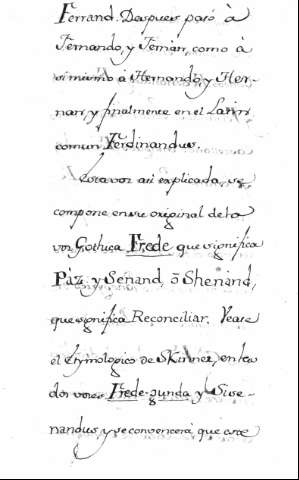 Ferrand. Despues pasó à
Fernando, y Fernan, como à
si mismo à Hernando, y Her-
nan, y finalmente en el Latin
comun Ferdinandus.
Esta voz asi explicada, se
compone en su original de la
voz Gothica Frede que significa
Paz y Senand, ō Shenand,
que significa Reconciliar. Vease
el Etymologico de Skinner, en las
dos voces Frede-gunda y Sise-
nandus y se convencerá que este